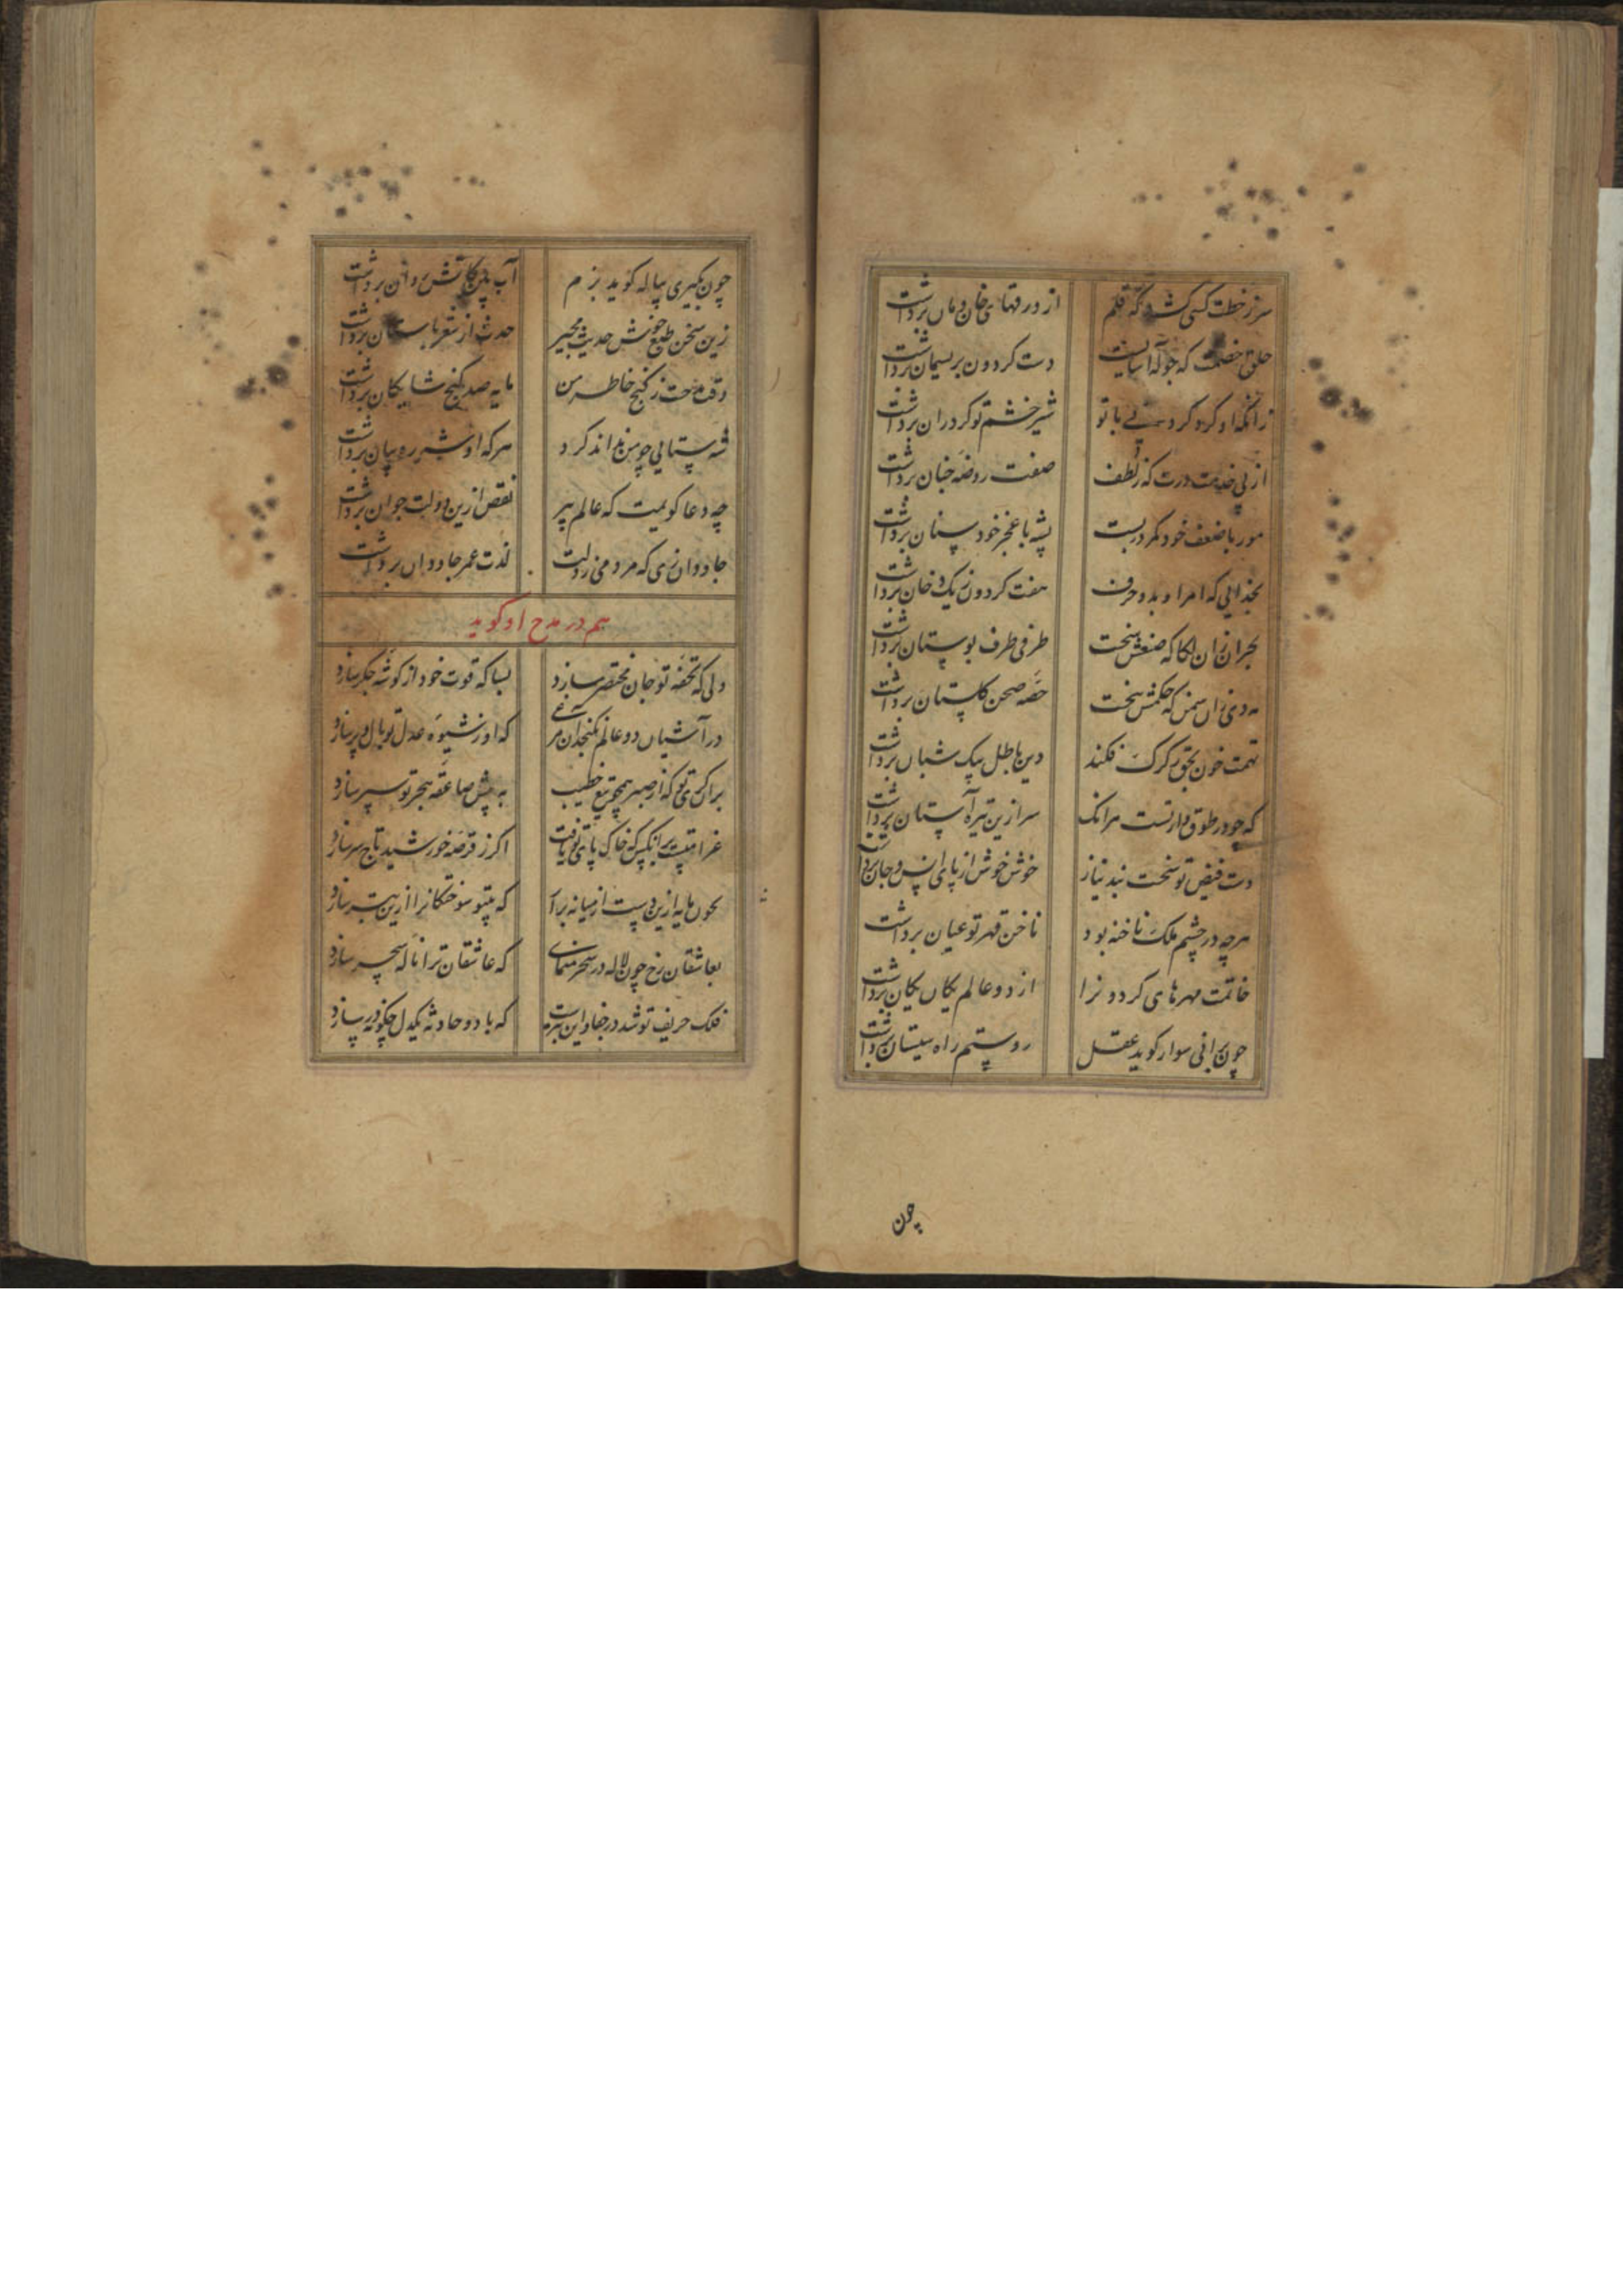 سر ز خطت کسی کشد که قلم
از ورقهای خان و مان برداشت
حلق خصمت که جو که آسیاست
دست کردون بریسمان برداشت
زانکه او کرد کردنی با تو
شیر خشم تو کرد ران برداشت
از پی خدمت درت که ز لطف
صفت روضه جنان برداشت
مور با ضعف خود کمر دربست
پشه با عجز خود سنان برداشت
بخدایی که امر او بدو حرف
هفت کردون ز یک دخان برداشت
بحر ازان که صنعش پخت
طرفی طرف بوستان برداشت
حصه صحن کلستان برداشت
تهمت خون بحق ز کرک فکند
دین باطل بیک شبان برداشت
که چو در طوق دار تست مرانک
سر ازین تیره آستان برداشت
دست فیض تو سخت بند نیاز
خوش خوش از پای انس و جان برداشت
هرچه در چشم ملک ناخنه بود
ناخن قهر تو عیان برداشت
خاتمت مهرهای کردونرا
از دو عالم یکان یکان برداشت
چون برانی سوار کوید عقل
روستم راه سیستان برداشت
چون
چون بگیری پیاله کوید بزم
آب بین کاتش روان برداشت
زین سخن طبع خوش حدیث مجیر
حدث از شعر باستان برداشت
وقت مدحت ز کنج خاطر من
مایه صد کنج شایکان برداشت
شه ستایی چو من نداند کرد
هرکه او شیر ره بیان برداشت
چه دعا کویمت که عالم پیر
نقص ازین دولت جوان برداشت
جاودان زی که مردمی ز دلت
لذت عمر جاودان برداشت
هم در مدح او کوید
دلی که تحفه تو جان مختصر سازد
بسا که قوت خود از کوشه جکر سازد
در آشیان دو عالم نکنجد آن مرغی
که او ز شیوه عدل تو بال و پر سازد
بران کری تو که از صبر همچو تیغ خطیب
به پیش صاعقه هجر تو سپر سازد
غرامتست بر آنکس که خاک پای تو یافت
اکر ز قرصه خورشید تاج سر سازد
بخون مایه ازین دست از میانه برآ
که بیتو سوختکانرا ازین بتر سازد
بعاشقان رخ چون لاله در سحر منمای
که عاشقان ترا ناله سحر سازد
فلک حریف تو شد در جفا و این بترست
که با دو حادثه یکدل چکونه درسازد